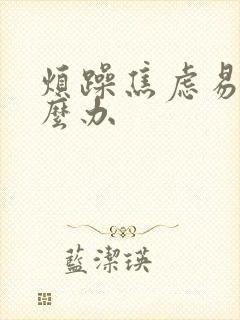 煩躁焦慮易
麼办
藍潔瑛